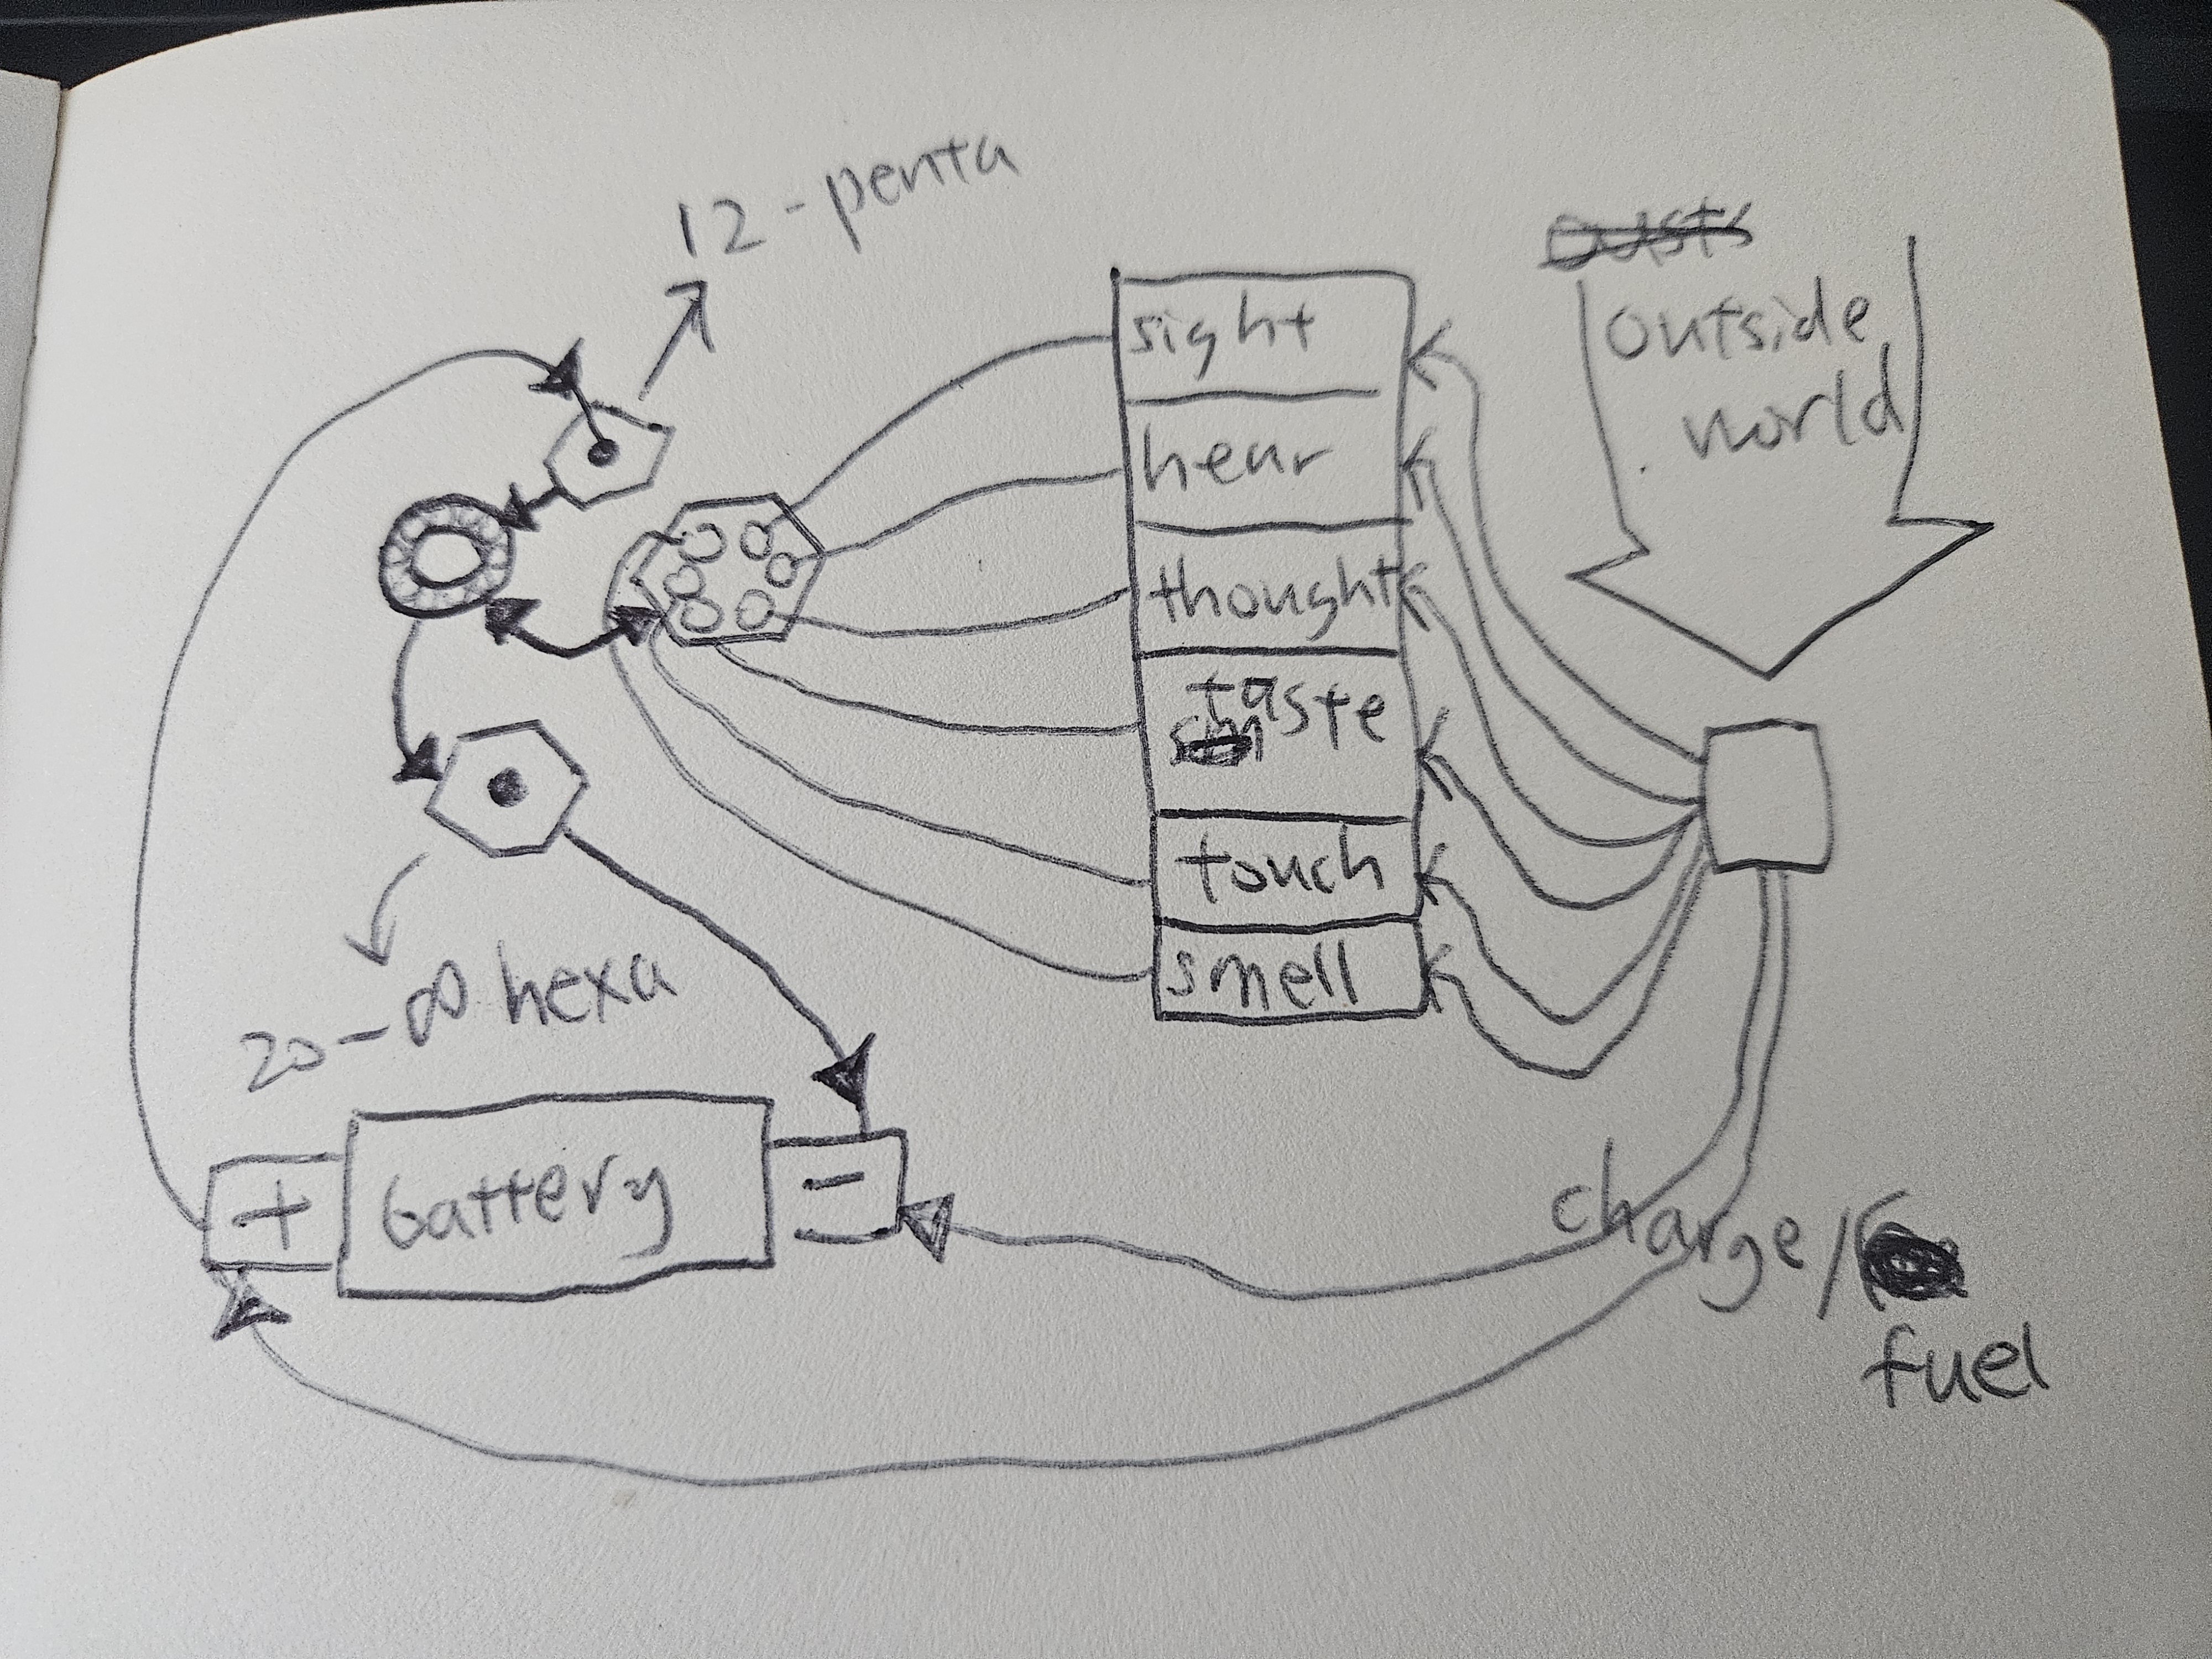 12-penta
outside
world
sight
hear
thought
taste
touch
smell
20-∞ hexa
+
battery
-
charge/
fuel